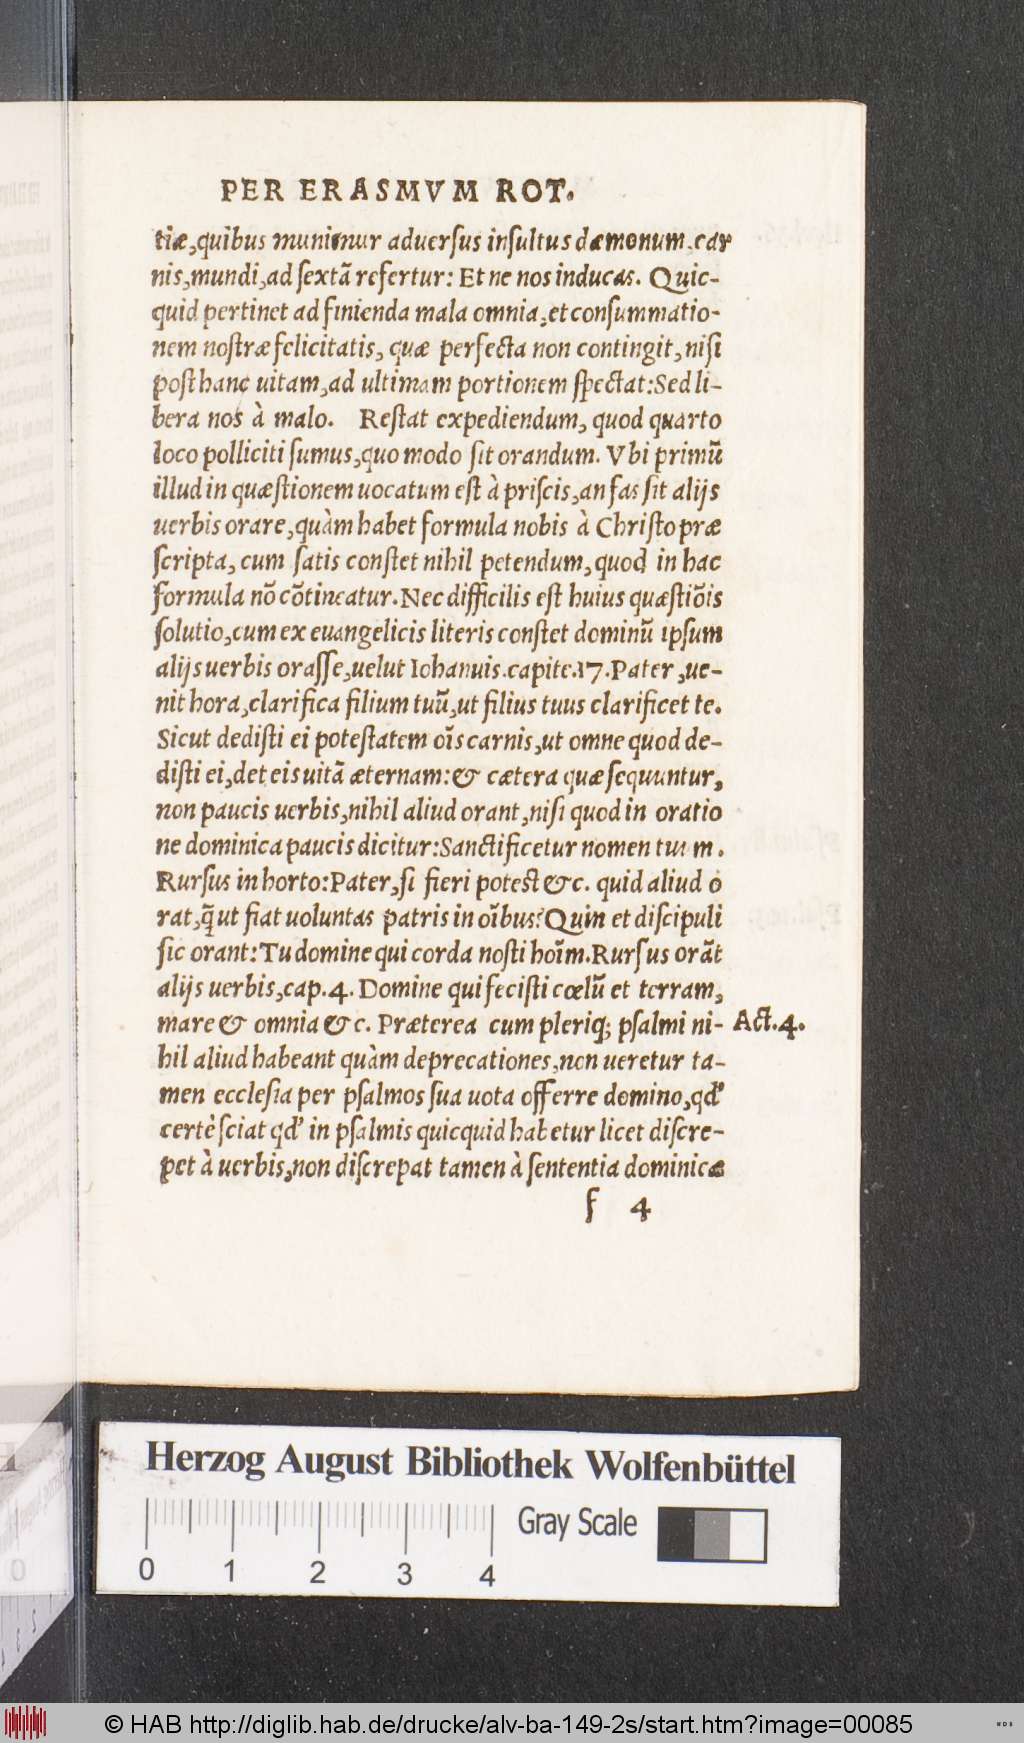 PER ERASMVM ROT.
tiæ, quibus munimur aduersus insultus dæmonum, car
nis, mundi, ad sextã refertur: Et ne nos inducas. Quic-
quid pertinet ad finienda mala omnia, et consummatio-
nem nostræ felicitatis, quæ perfecta non contingit, nisi
post hanc uitam, ad ultimam portionem spectat: Sed li-
bera nos à malo. Restat expediendum, quod quarto
loco polliciti sumus, quo modo sit orandum. Vbi primũ
illud in quæstionem uocatum est à priscis, an fas sit alijs
uerbis orare, quàm habet formula nobis à Christo præ
scripta, cum satis constet nihil petendum, quod in hac
formula nõ cõtineatur. Nec difficilis est huius quæstiõis
solutio, cum ex euangelicis literis constet dominũ ipsum
alijs uerbis orasse, uelut Iohannis. capite. 17. Pater, ue-
nit hora, clarifica filium tuũ, ut filius tuus clarificet te.
Sicut dedisti ei potestatem oĩs carnis, ut omne quod de-
disti ei, det eis uitã æternam: & cætera quæ sequuntur,
non paucis uerbis, nihil aliud orant, nisi quod in oratio
ne dominica paucis dicitur: Sanctificetur nomen tuum.
Rursus in horto: Pater, si fieri potest &c. quid aliud o
rat, q̃ ut fiat uoluntas patris in oĩbus? Quin et discipuli
sic orant: Tu domine qui corda nosti hoĩm. Rursus orãt
alijs uerbis, cap. 4. Domine qui fecisti cœlũ et terram,
mare & omnia &c. Præterea cum pleriq; psalmi ni- Act. 4.
hil aliud habeant quàm deprecationes, non ueretur ta-
men ecclesia per psalmos sua uota offerre domino, qd'
certè sciat qd' in psalmis quicquid habetur licet discre-
pet à uerbis, non discrepat tamen à sententia dominicæ
f 4
Herzog August Bibliothek Wolfenbüttel
Gray Scale
0 1 2 3 4
© HAB http://diglib.hab.de/drucke/alv-ba-149-2s/start.htm?image=00085